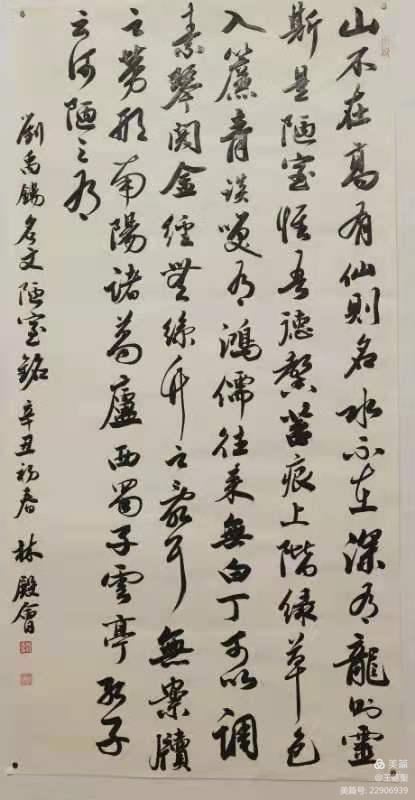 山不在高有仙則名水不在深有龍則靈
斯是陋室惟吾德馨苔痕上階綠草色
入簾青談笑有鴻儒往来無白丁可以調
素琴閱金經無絲竹之亂耳無案牘
之勞形南陽諸葛廬西蜀子雲亭孔子
云何陋之有
劉禹錫名文陋室銘辛丑初春林殿會
美篇
美篇号: 22906939